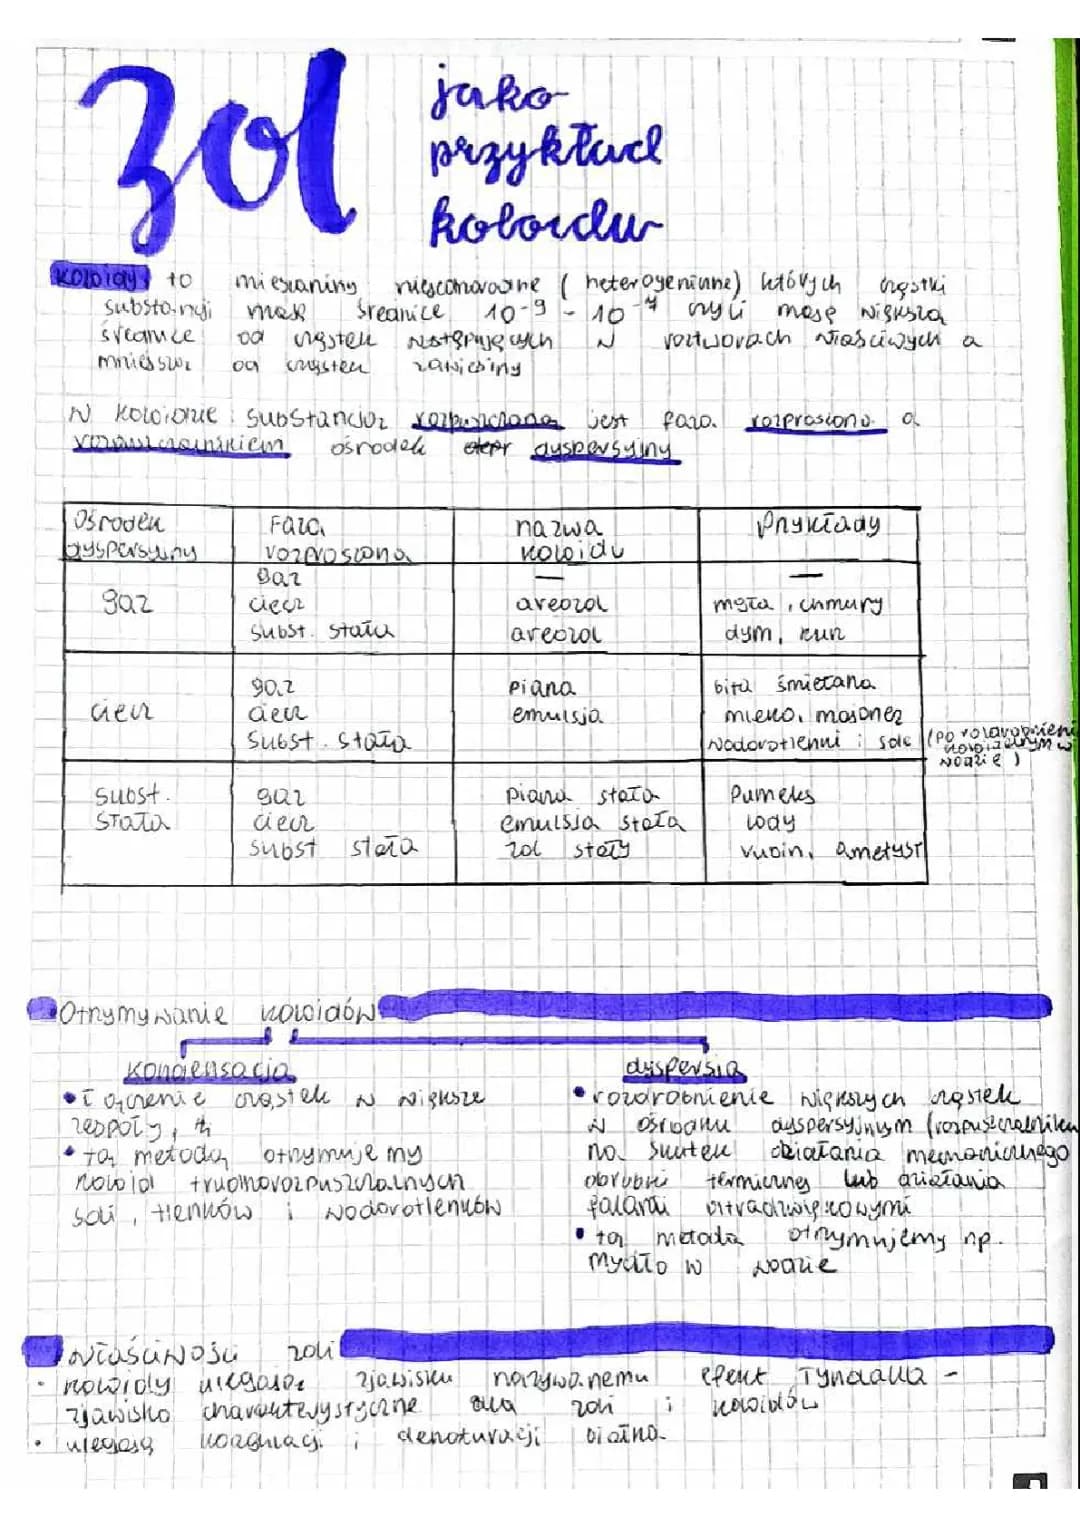 zol jako
przykład
koloidu
koloidy to mieszaniny niejednorodne (heterogeniczne) których cząstki
substancji mają średnice 10-9 - 10-7 czyli mają większą
średnice od cząstek występujących w roztworach właściwych a
mniejszą od cząstek zawiesiny
W koloidzie substancją rozpuszczoną jest faza rozproszona a
rozpuszczalnikiem ośrodek dyspersyjny
Ośrodek Faza nazwa Przykłady
dyspersyjny rozproszona koloidu
gaz — —
gaz ciecz areozol mgła, chmury
subst. stała areozol dym, kurz
gaz piana bita śmietana
ciecz ciecz emulsja mleko, majonez
subst. stała wodorotlenki i sole (po rozdrobnieniu
koloidalnym w
wodzie)
subst. gaz piana stała Pumeks
stała ciecz emulsja stała lody
subst stała zol stały rubin, ametyst
Otrzymywanie koloidów
kondensacja dyspersja
• łączenie cząstek w większe
zespoły,
• tą metodą otrzymujemy
koloid trudnorozpuszczalnych
soli, tlenków i wodorotlenków
• rozdrobnienie większych cząstek
w ośrodku dyspersyjnym (rozpuszczalniku
na skutek działania mechanicznego
obróbki termicznej lub działania
falami ultradźwiękowymi
• tą metodą otrzymujemy np.
mydło w wodzie
właściwości zoli
• koloidy ulegają zjawisku nazywanemu efekt Tyndalla -
zjawisko charakterystyczne dla zoli i koloidów
• ulegają koagulacji i denaturacji białka